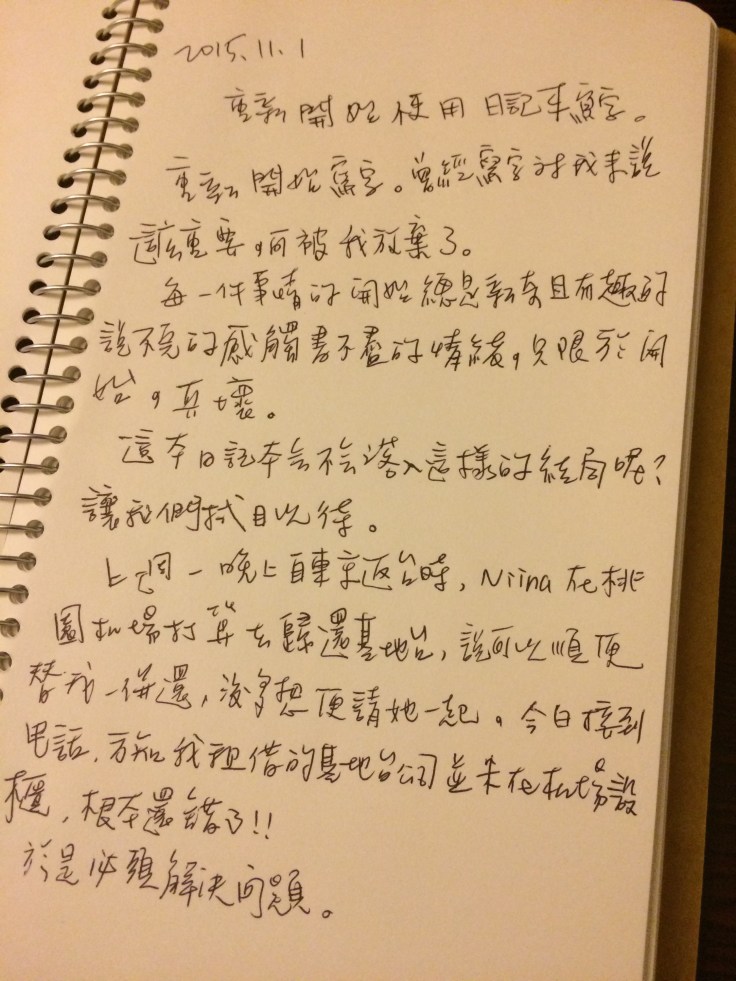 2015.11.1
重新開始使用日記本寫字。
重新開始寫字。曾經寫字對我來說
這麼重要，而被我放棄了。
每一件事情的開始總是新奇且有趣的
說不完的感觸書不盡的情緒，只限於開
始，真壞。
這本日記本會不會落入這樣的結局呢？
讓我們拭目以待。
上週一晚上自東京返台時，Niina 在桃
園机場打算去歸還基地台，說可以順便
替我一併還，沒多想便請她一起。今日接到
电話，方知我租借的基地台公司並未在机場設
櫃，根本還錯了!!
於是必須解決問題。